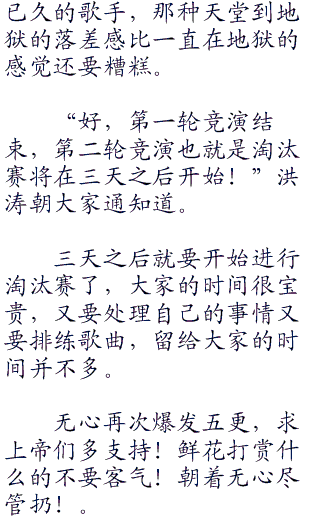 已久的歌手，那种天堂到地
狱的落差感比一直在地狱的
感觉还要糟糕。
“好，第一轮竞演结
束，第二轮竞演也就是淘汰
赛将在三天之后开始！”洪
涛朝大家通知道。
三天之后就要开始进行
淘汰赛了，大家的时间很宝
贵，又要处理自己的事情又
要排练歌曲，留给大家的时
间并不多。
无心再次爆发五更，求
上帝们多支持！鲜花打赏什
么的不要客气！朝着无心尽
管扔！。